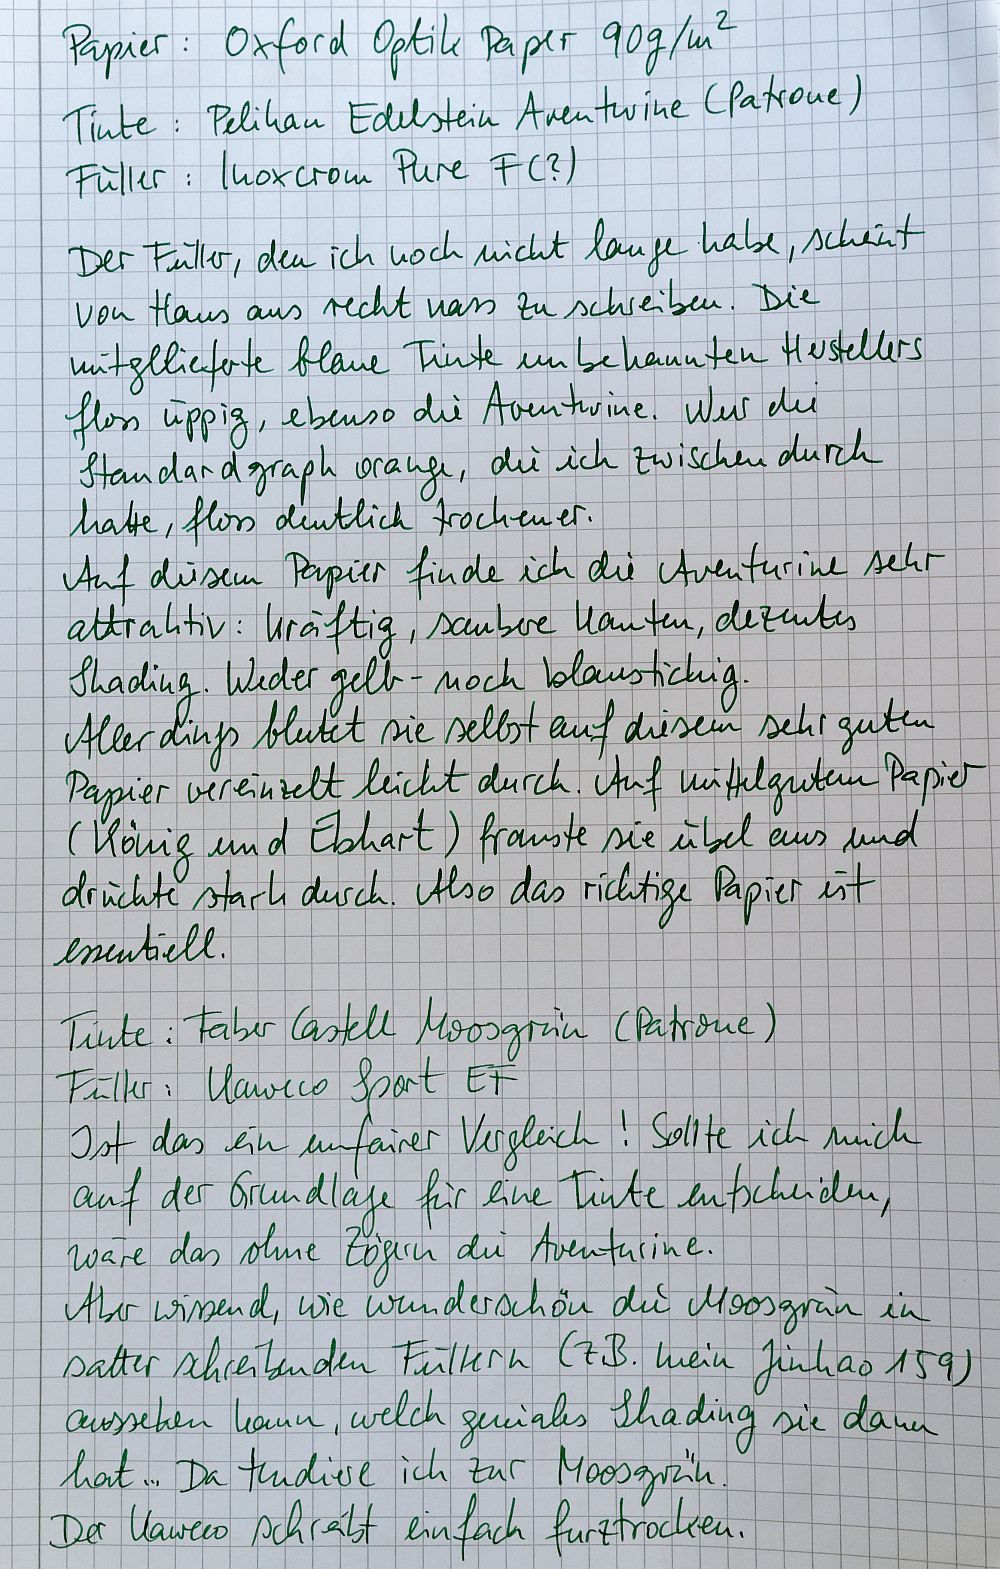 Papier: Oxford Optik Paper 90g/m²
Tinte: Pelikan Edelstein Aventurine (Patrone)
Füller: Inoxcrom Pure F(?)
Der Füller, den ich noch nicht lange habe, scheint
von Haus aus recht nass zu schreiben. Die
mitgelieferte blaue Tinte unbekannten Herstellers
floss üppig, ebenso die Aventurine. Nur die
Standardgraph orange, die ich zwischendurch
hatte, floss deutlich trockener.
Auf diesem Papier finde ich die Aventurine sehr
attraktiv: kräftig, saubere Kanten, dezentes
Shading. Weder gelb- noch blaustichig.
Allerdings blutet sie selbst auf diesem sehr guten
Papier vereinzelt leicht durch. Auf mittelgutem Papier
(König und Ebhart) franste sie übel aus und
drückte stark durch. Also das richtige Papier ist
essentiell.
Tinte: Faber Castell Moosgrün (Patrone)
Füller: Kaweco Sport EF
Ist das ein unfairer Vergleich! Sollte ich mich
auf der Grundlage für eine Tinte entscheiden,
wäre das ohne Zögern die Aventurine.
Aber wissend, wie wunderschön die Moosgrün in
satter schreibenden Füllern (z.B. mein Jinhao 159)
aussehen kann, welch geniales Shading sie dann
hat... Da tendiere ich zur Moosgrün.
Der Kaweco schreibt einfach furztrocken.